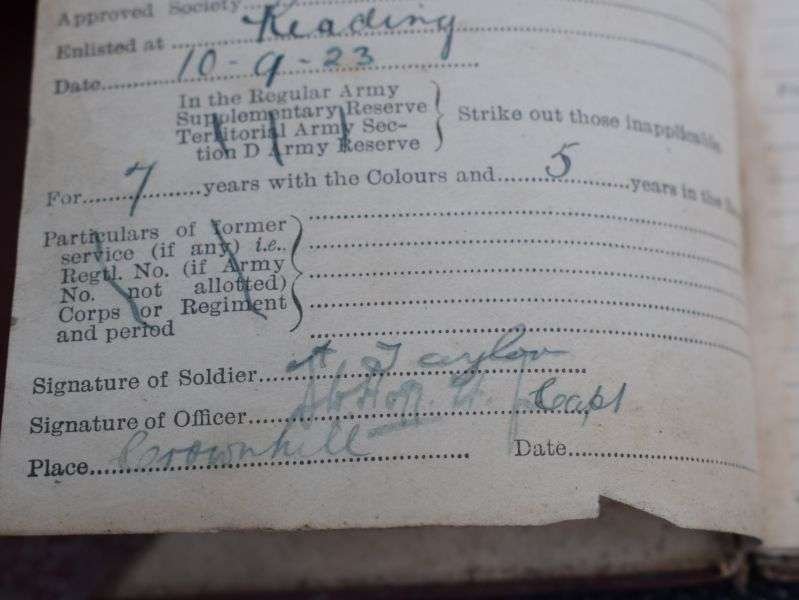 Approved Society
Enlisted at Reading
Date 10-9-23
In the Regular Army
Supplementary Reserve
Territorial Army Sec-
tion D Army Reserve
Strike out those inapplicable
For 7 years with the Colours and 5 years in the
Particulars of former
service (if any) i.e.,
Regtl. No. (if Army
No. not allotted)
Corps or Regiment
and period
Signature of Soldier A Taylor
Signature of Officer Capt
Place Crownhill Date